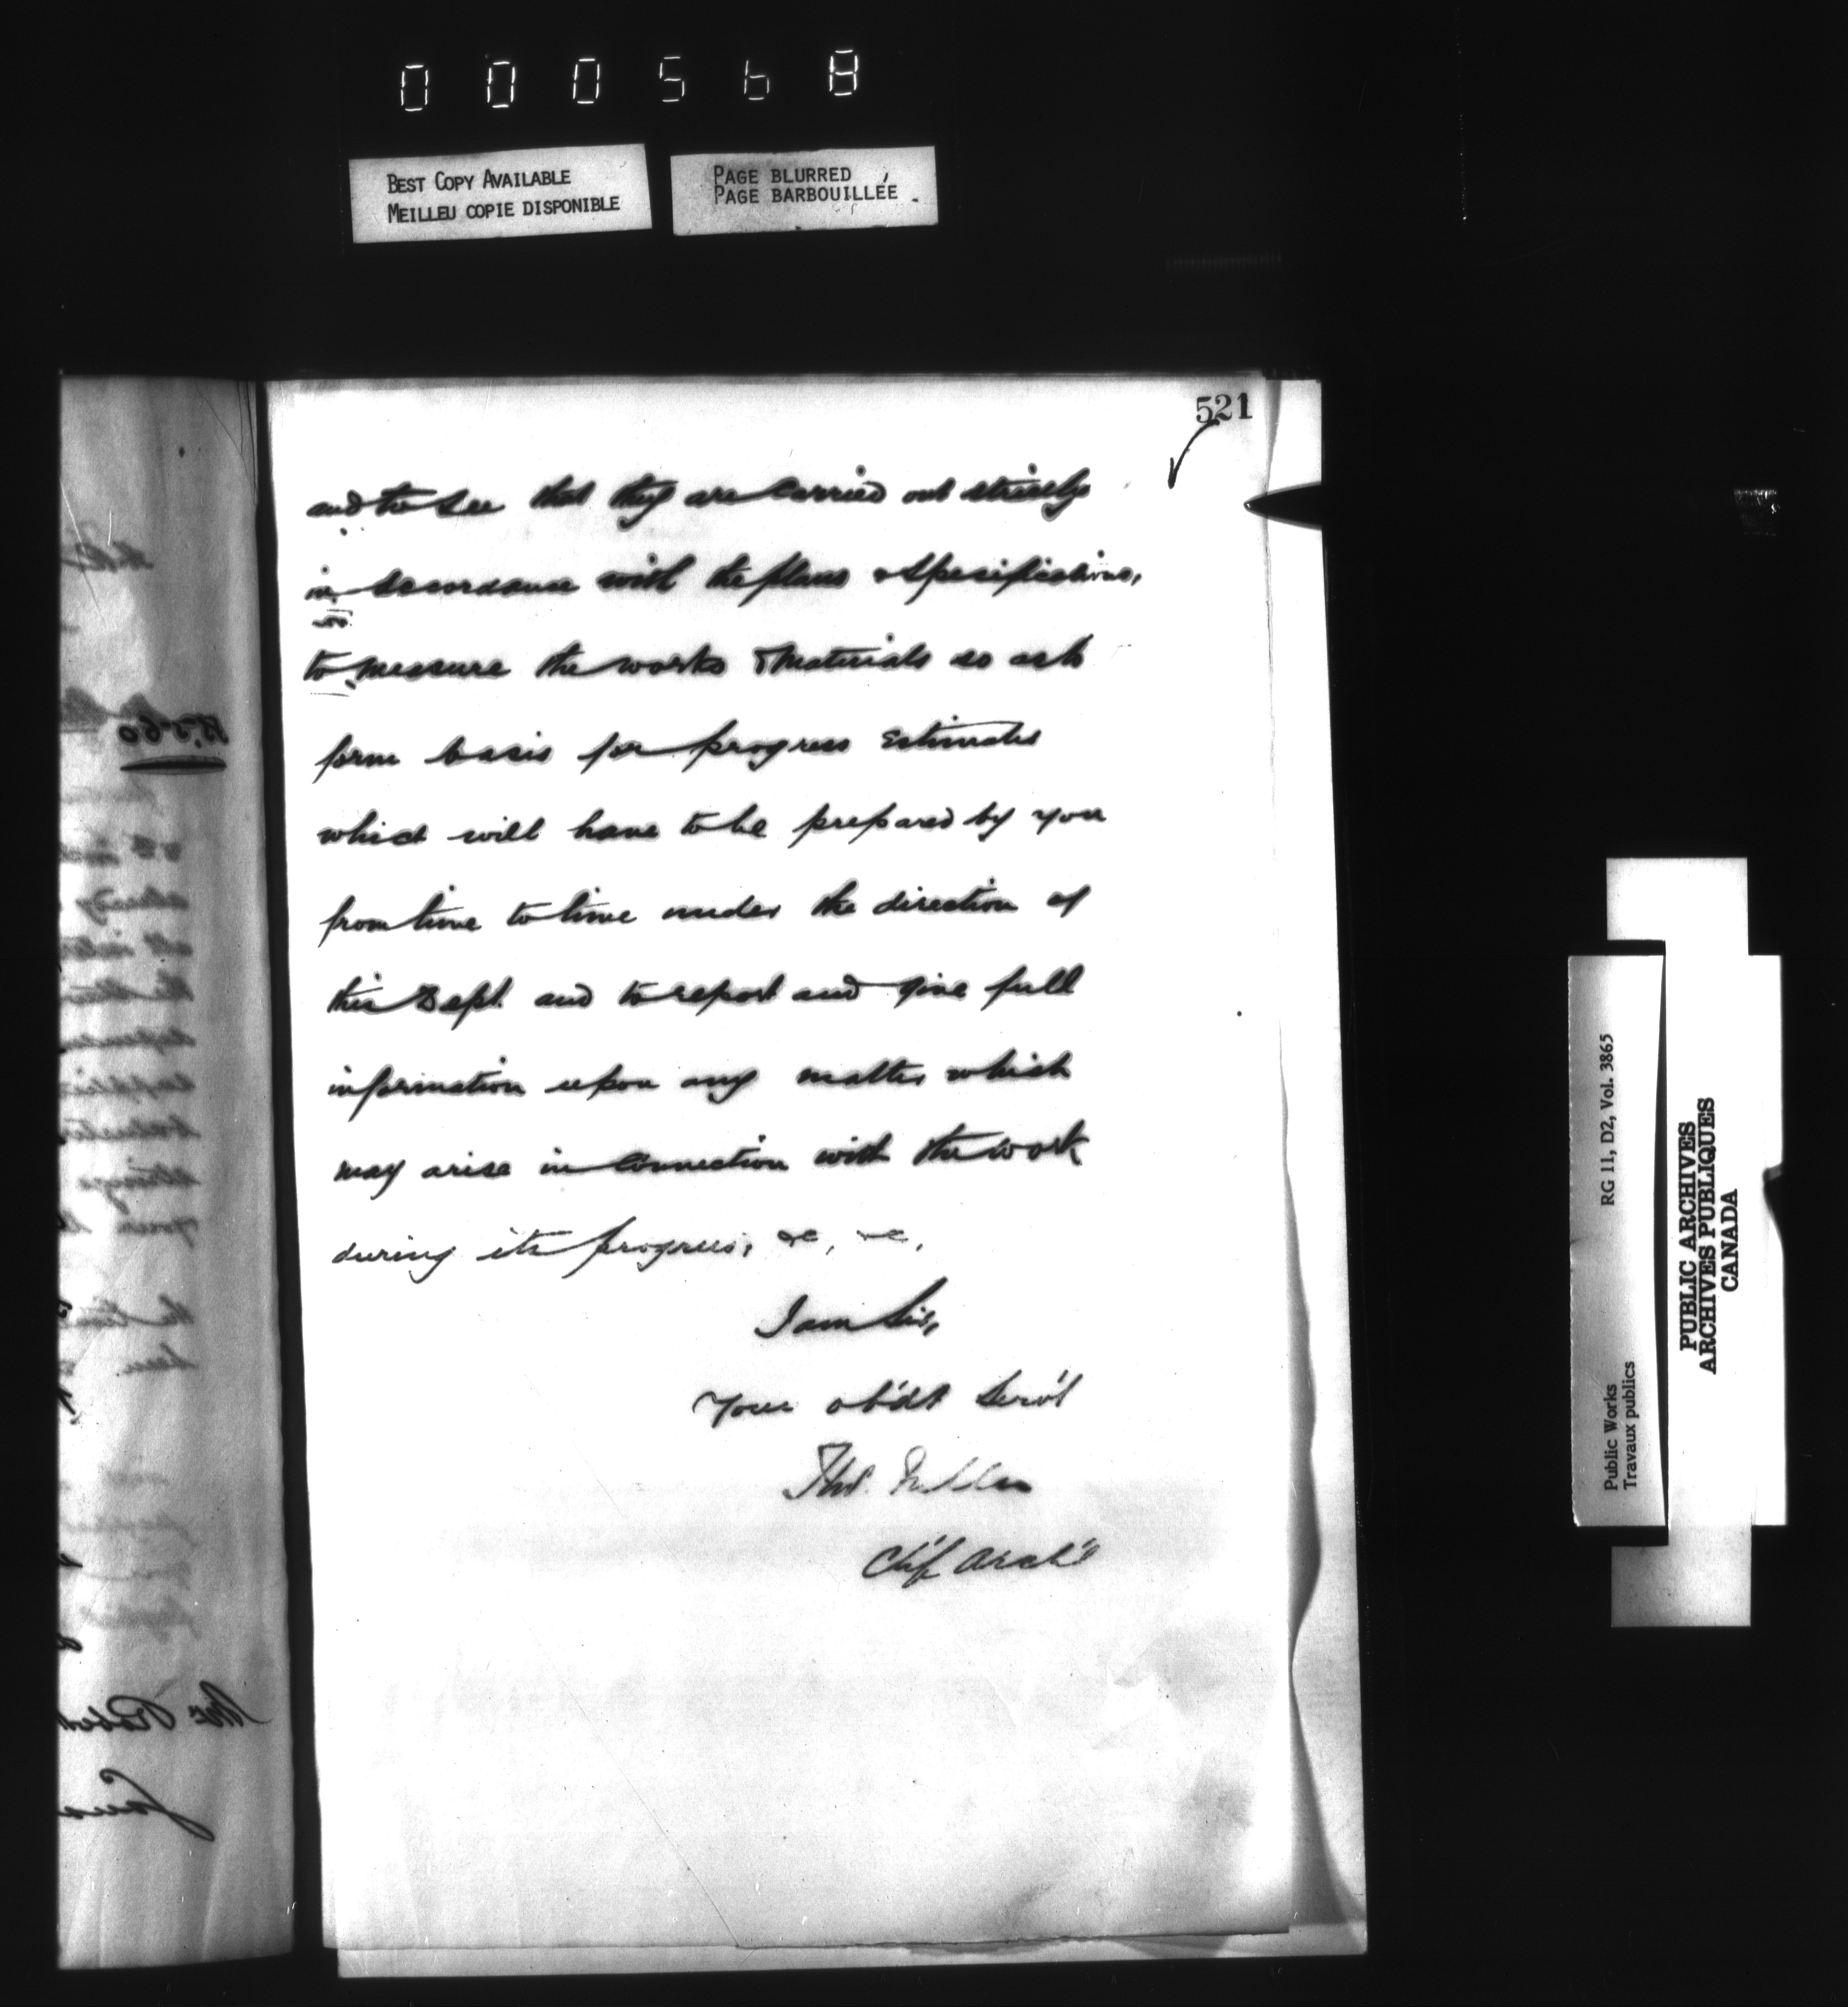 000568
BEST COPY AVAILABLE
MEILLEU COPIE DISPONIBLE
PAGE BLURRED
PAGE BARBOUILLÉE
521
and to see that they are carried out strictly
in accordance with the plans & specifications,
to measure the works & materials so as to
form basis for progress estimates
which will have to be prepared by you
from time to time under the direction of
this Dept. and to report and give full
information upon any matter which
may arise in connection with the work
during its progress, &c, &c,
I am Sir,
Your ob'dt Serv't
Thos. Fuller
Ch'f Arch't
Public Works
Travaux publics
RG 11, D2, Vol. 3865
PUBLIC ARCHIVES
ARCHIVES PUBLIQUES
CANADA